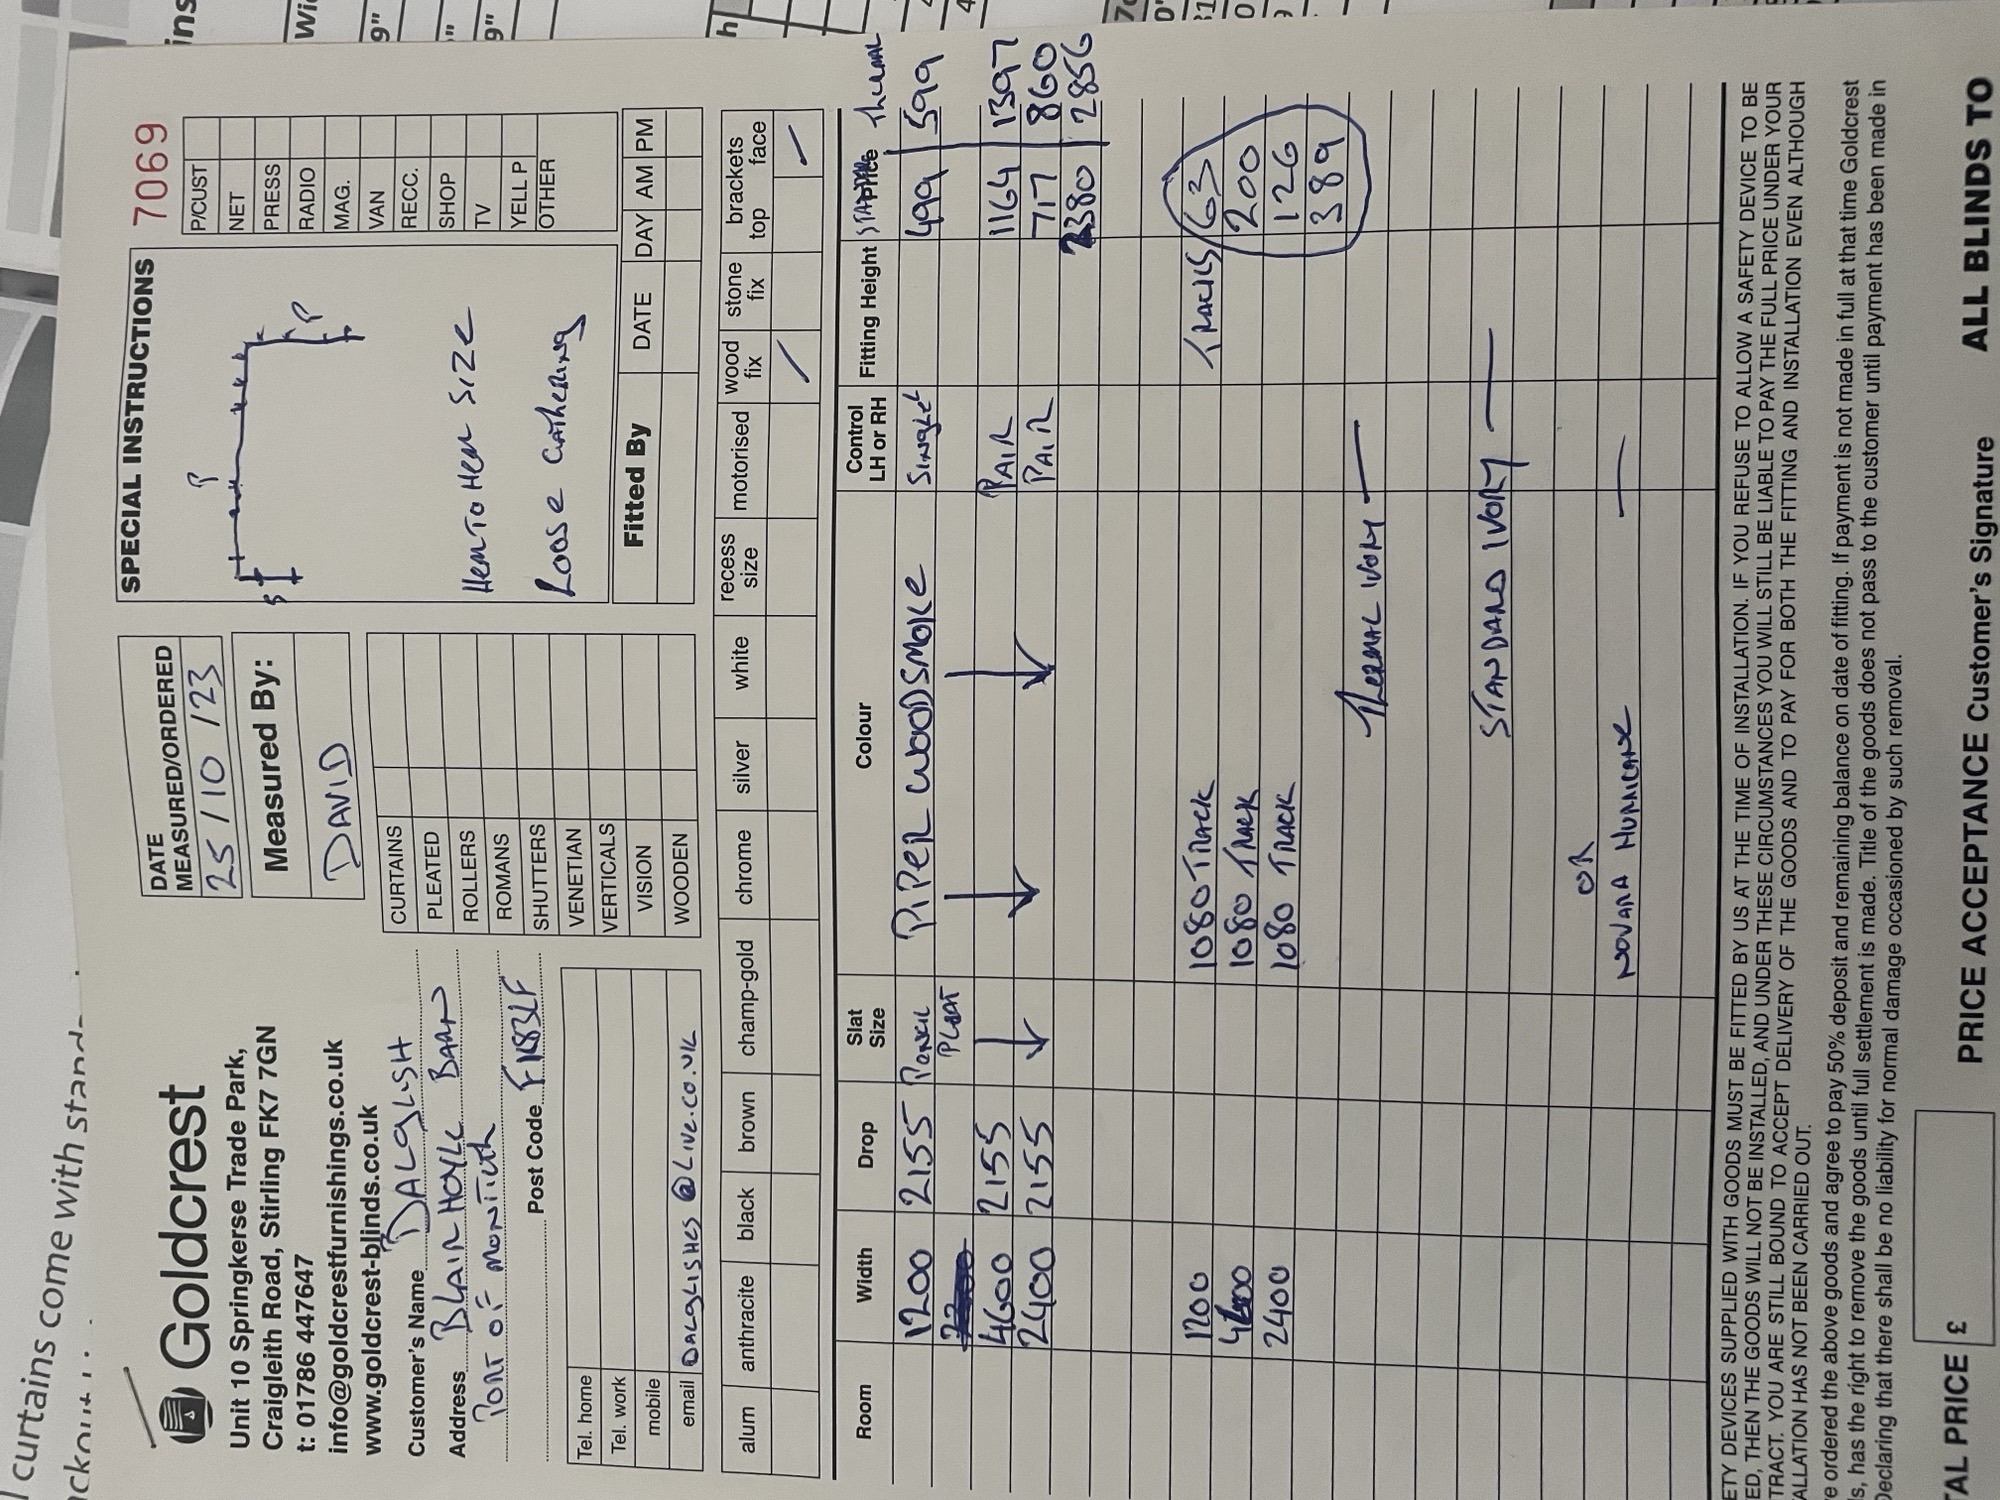 curtains come with
7069
Goldcrest
Unit 10 Springkerse Trade Park,
Craigleith Road, Stirling FK7 7GN
t: 01786 447647
info@goldcrestfurnishings.co.uk
www.goldcrest-blinds.co.uk
Customer's Name DALGLISH
Address BLAIRHOYLE BARN
PORT OF MONTIETH
Post Code FK83LF
Tel. home
Tel. work
mobile
email DALGLISHES@LIVE.CO.UK
DATE
MEASURED/ORDERED
25/10/23
Measured By:
DAVID
CURTAINS
PLEATED
ROLLERS
ROMANS
SHUTTERS
VENETIAN
VERTICALS
VISION
WOODEN
SPECIAL INSTRUCTIONS
P
P
S
HEM TO HEM SIZE
LOOSE GATHERING
P/CUST
NET
PRESS
RADIO
MAG.
VAN
RECC.
SHOP
TV
YELL P
OTHER
Fitted By DATE DAY AM PM
alum anthracite black brown champ-gold chrome silver white recess size motorised wood fix stone fix brackets top face
Room Width Drop Slat Size Colour Control LH or RH Fitting Height Price THERMAL
1200 2155 PENCIL PIPER WOODSMOKE SINGLE 499 599
PLEAT
4600 2155 PAIR 1164 1397
2400 2155 PAIR 717 860
2380 2856
1200 1080 TRACK TRACKS 63
4600 1080 TRACK 200
2400 1080 TRACK 126
389
THERMAL IVORY —
STANDARD IVORY —
OR
NOVARA HURRICANE —
ETY DEVICES SUPPLIED WITH GOODS MUST BE FITTED BY US AT THE TIME OF INSTALLATION. IF YOU REFUSE TO ALLOW A SAFETY DEVICE TO BE
ED, THEN THE GOODS WILL NOT BE INSTALLED, AND UNDER THESE CIRCUMSTANCES YOU WILL STILL BE LIABLE TO PAY THE FULL PRICE UNDER YOUR
TRACT. YOU ARE STILL BOUND TO ACCEPT DELIVERY OF THE GOODS AND TO PAY FOR BOTH THE FITTING AND INSTALLATION EVEN ALTHOUGH
ALLATION HAS NOT BEEN CARRIED OUT.
e ordered the above goods and agree to pay 50% deposit and remaining balance on date of fitting. If payment is not made in full at that time Goldcrest
s, has the right to remove the goods until full settlement is made. Title of the goods does not pass to the customer until payment has been made in
Declaring that there shall be no liability for normal damage occasioned by such removal.
TAL PRICE £ PRICE ACCEPTANCE Customer's Signature ALL BLINDS TO